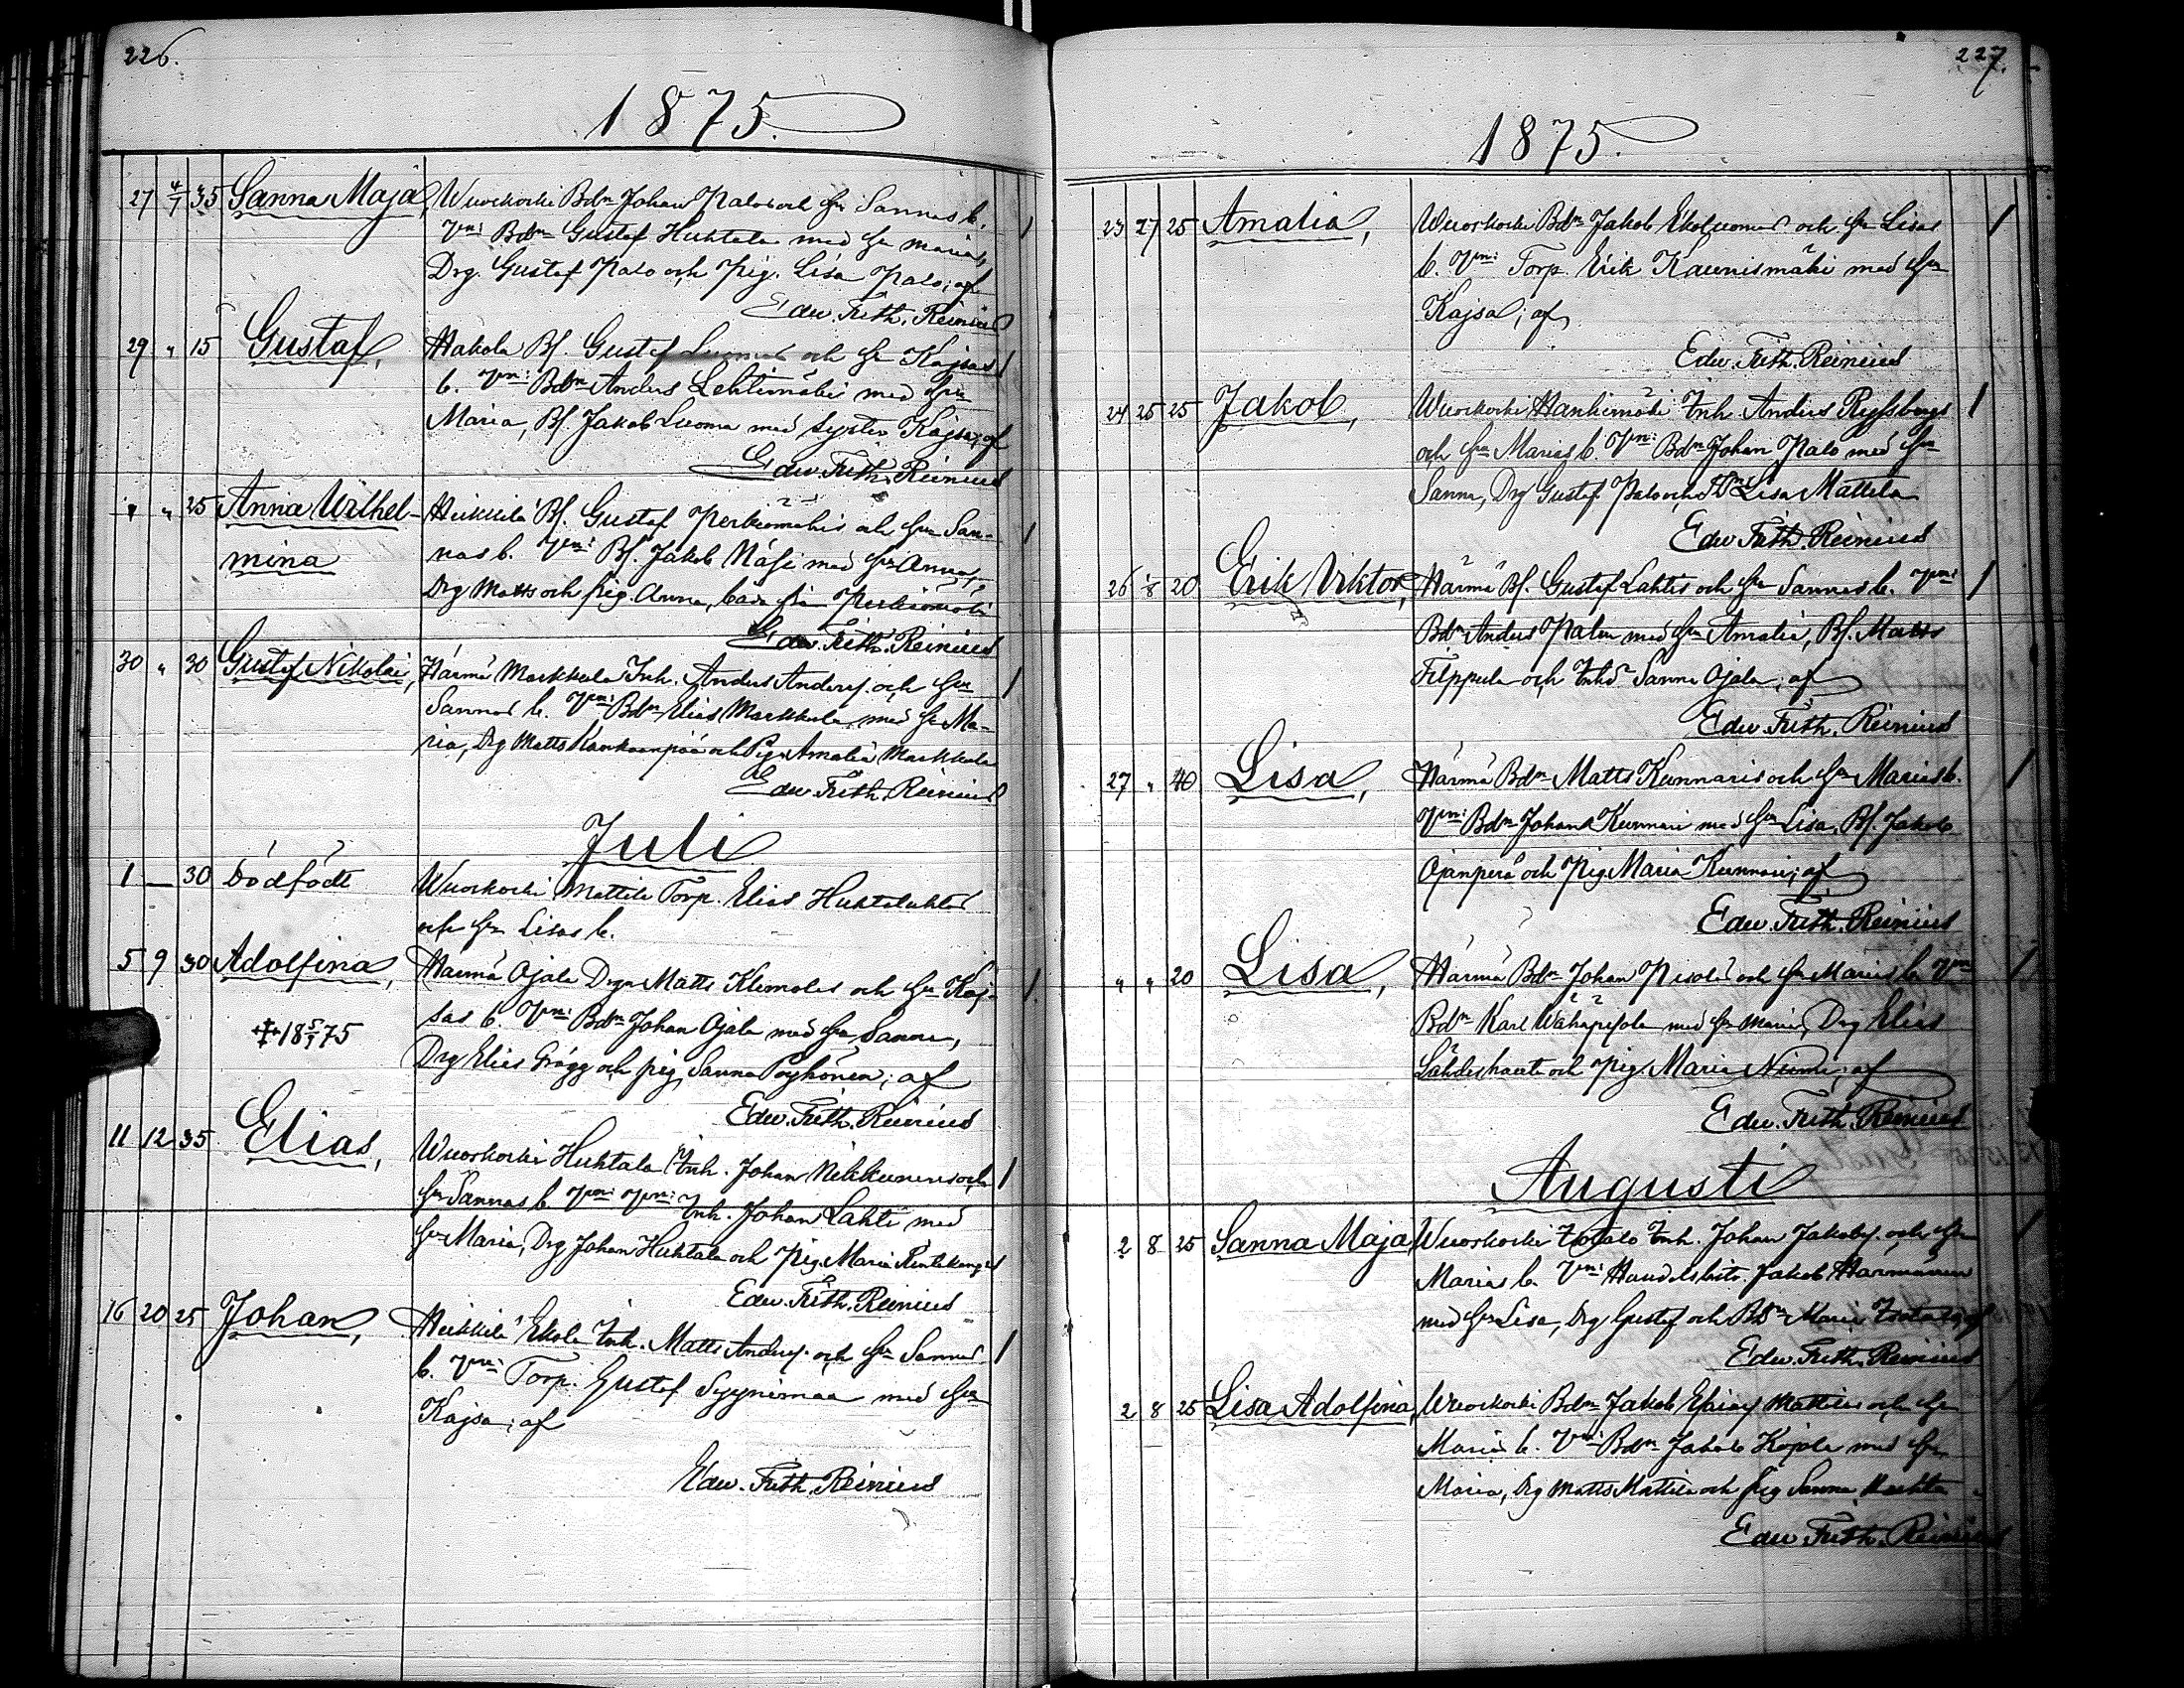 226.
1875.
27 4/7 35 Sanna Maja, Wuoskoski Bdn Johan Palos och hu Sannas b.
Vni: Bdn Gustaf Huhtala med hu Maria,
Drg. Gustaf Palo och Pig. Lisa Palo; af
Edw. Frith. Reinius
29 " 15 Gustaf, Hakola Bf. Gustaf Luomas och hu Kajsas
b. Vni: Bdn Anders Lehtimäki med hu
Maria, Bf. Jakob Luoma med syster Kajsa; af
Edw. Frith. Reinius
" " 25 Anna Wilhel- Heikkilä Bf. Gustaf Perkiömäkis och hu San-
mina nas b. Vni: Bf. Jakob Näsi med hu Anna,
Drg Matts och pig. Anna, båda från Perkiömäki
Edw. Frith. Reinius
30 " 30 Gustaf Nikolai, Härmä Markkula Inh. Anders Andersf. och hu
Sannas b. Vni: Bdn Elias Markkula med hu Ma-
ria, Drg Matts Kankaanpää och Pig. Amalia Markkula
Edw. Frith. Reinius
Juli
1 — 30 Dödfödt Wuoskoski Mattila Torp. Elias Huhtalahtis
och hu Lisas b.
5 9 30 Adolfina, Härmä Ojala Drgn Matts Klemolas och hu Kaj-
sas b. Vni: Bdn Johan Ojala med hu Sanna,
‡ 18 5/7 75
Drg Elias Frägg och pig Sanna Poyhönen; af
Edw. Frith. Reinius
11 12 35 Elias, Wuoskoski Huhtala Inh. Johan Nikkunens och
hu Sannas b. Vni: Vni: Inh. Johan Lahti med
hu Maria, Drg Johan Huhtala och Pig. Maria Rintakangas
Edw. Frith. Reinius
16 20 25 Johan, Heikkilä Ekola Inh. Matts Andersf. och hu Sannas
b. Vni: Torp. Gustaf Syynimaa med hu
Kajsa; af
Edw. Frith. Reinius
227.
1875.
23 27 25 Amalia, Wuoskoski Bdn Jakob Ekoluomas och hu Lisas
b. Vni: Torp. Erik Kaunismäki med hu
Kajsa; af
Edw. Frith. Reinius
24 25 25 Jakob, Wuoskoski Hankimäki Inh. Anders Ryssbergs
och hu Marias b. Vni: Bdn Johan Palo med hu
Sanna, Drg Gustaf Palo och Lisa Mattila
Edw. Frith. Reinius
26 1/8 20 Erik Viktor, Härmä Bf. Gustaf Lahtis och hu Sannas b. Vni:
Bdn Anders Palin med hu Amalia, Bf. Matts
Filppula och Sanna Ojala; af
Edw. Frith. Reinius
27 " 40 Lisa, Härmä Bdn Matts Kunnaris och hu Marias b.
Vni: Bdn Johan Kunnari med hu Lisa, Bf. Jakob
Ojanperä och Pig. Maria Kunnari; af
Edw. Frith. Reinius
" " 20 Lisa, Härmä Bdn Johan Pesolas och hu Marias b. Vni:
Bdn Karl Wähäpesola med hu Maria, Drg Elias
Lähdeshaute och Pig. Maria Niemi; af
Edw. Frith. Reinius
Augusti
2 8 25 Sanna Maja, Wuoskoski Isotalo Inh. Johan Jakobsf. och hu
Marias b. Vni: Jakob Härmänen
med hu Lisa, Drg Gustaf och Maria Isotalo; af
Edw. Frith. Reinius
2 8 25 Lisa Adolfina, Wuoskoski Bdn Jakob Mattilas och hu
Marias b. Vni: Bdn Jakob Köpla med hu
Maria, Drg Matts Mattila och pig Sanna
Edw. Frith. Reinius